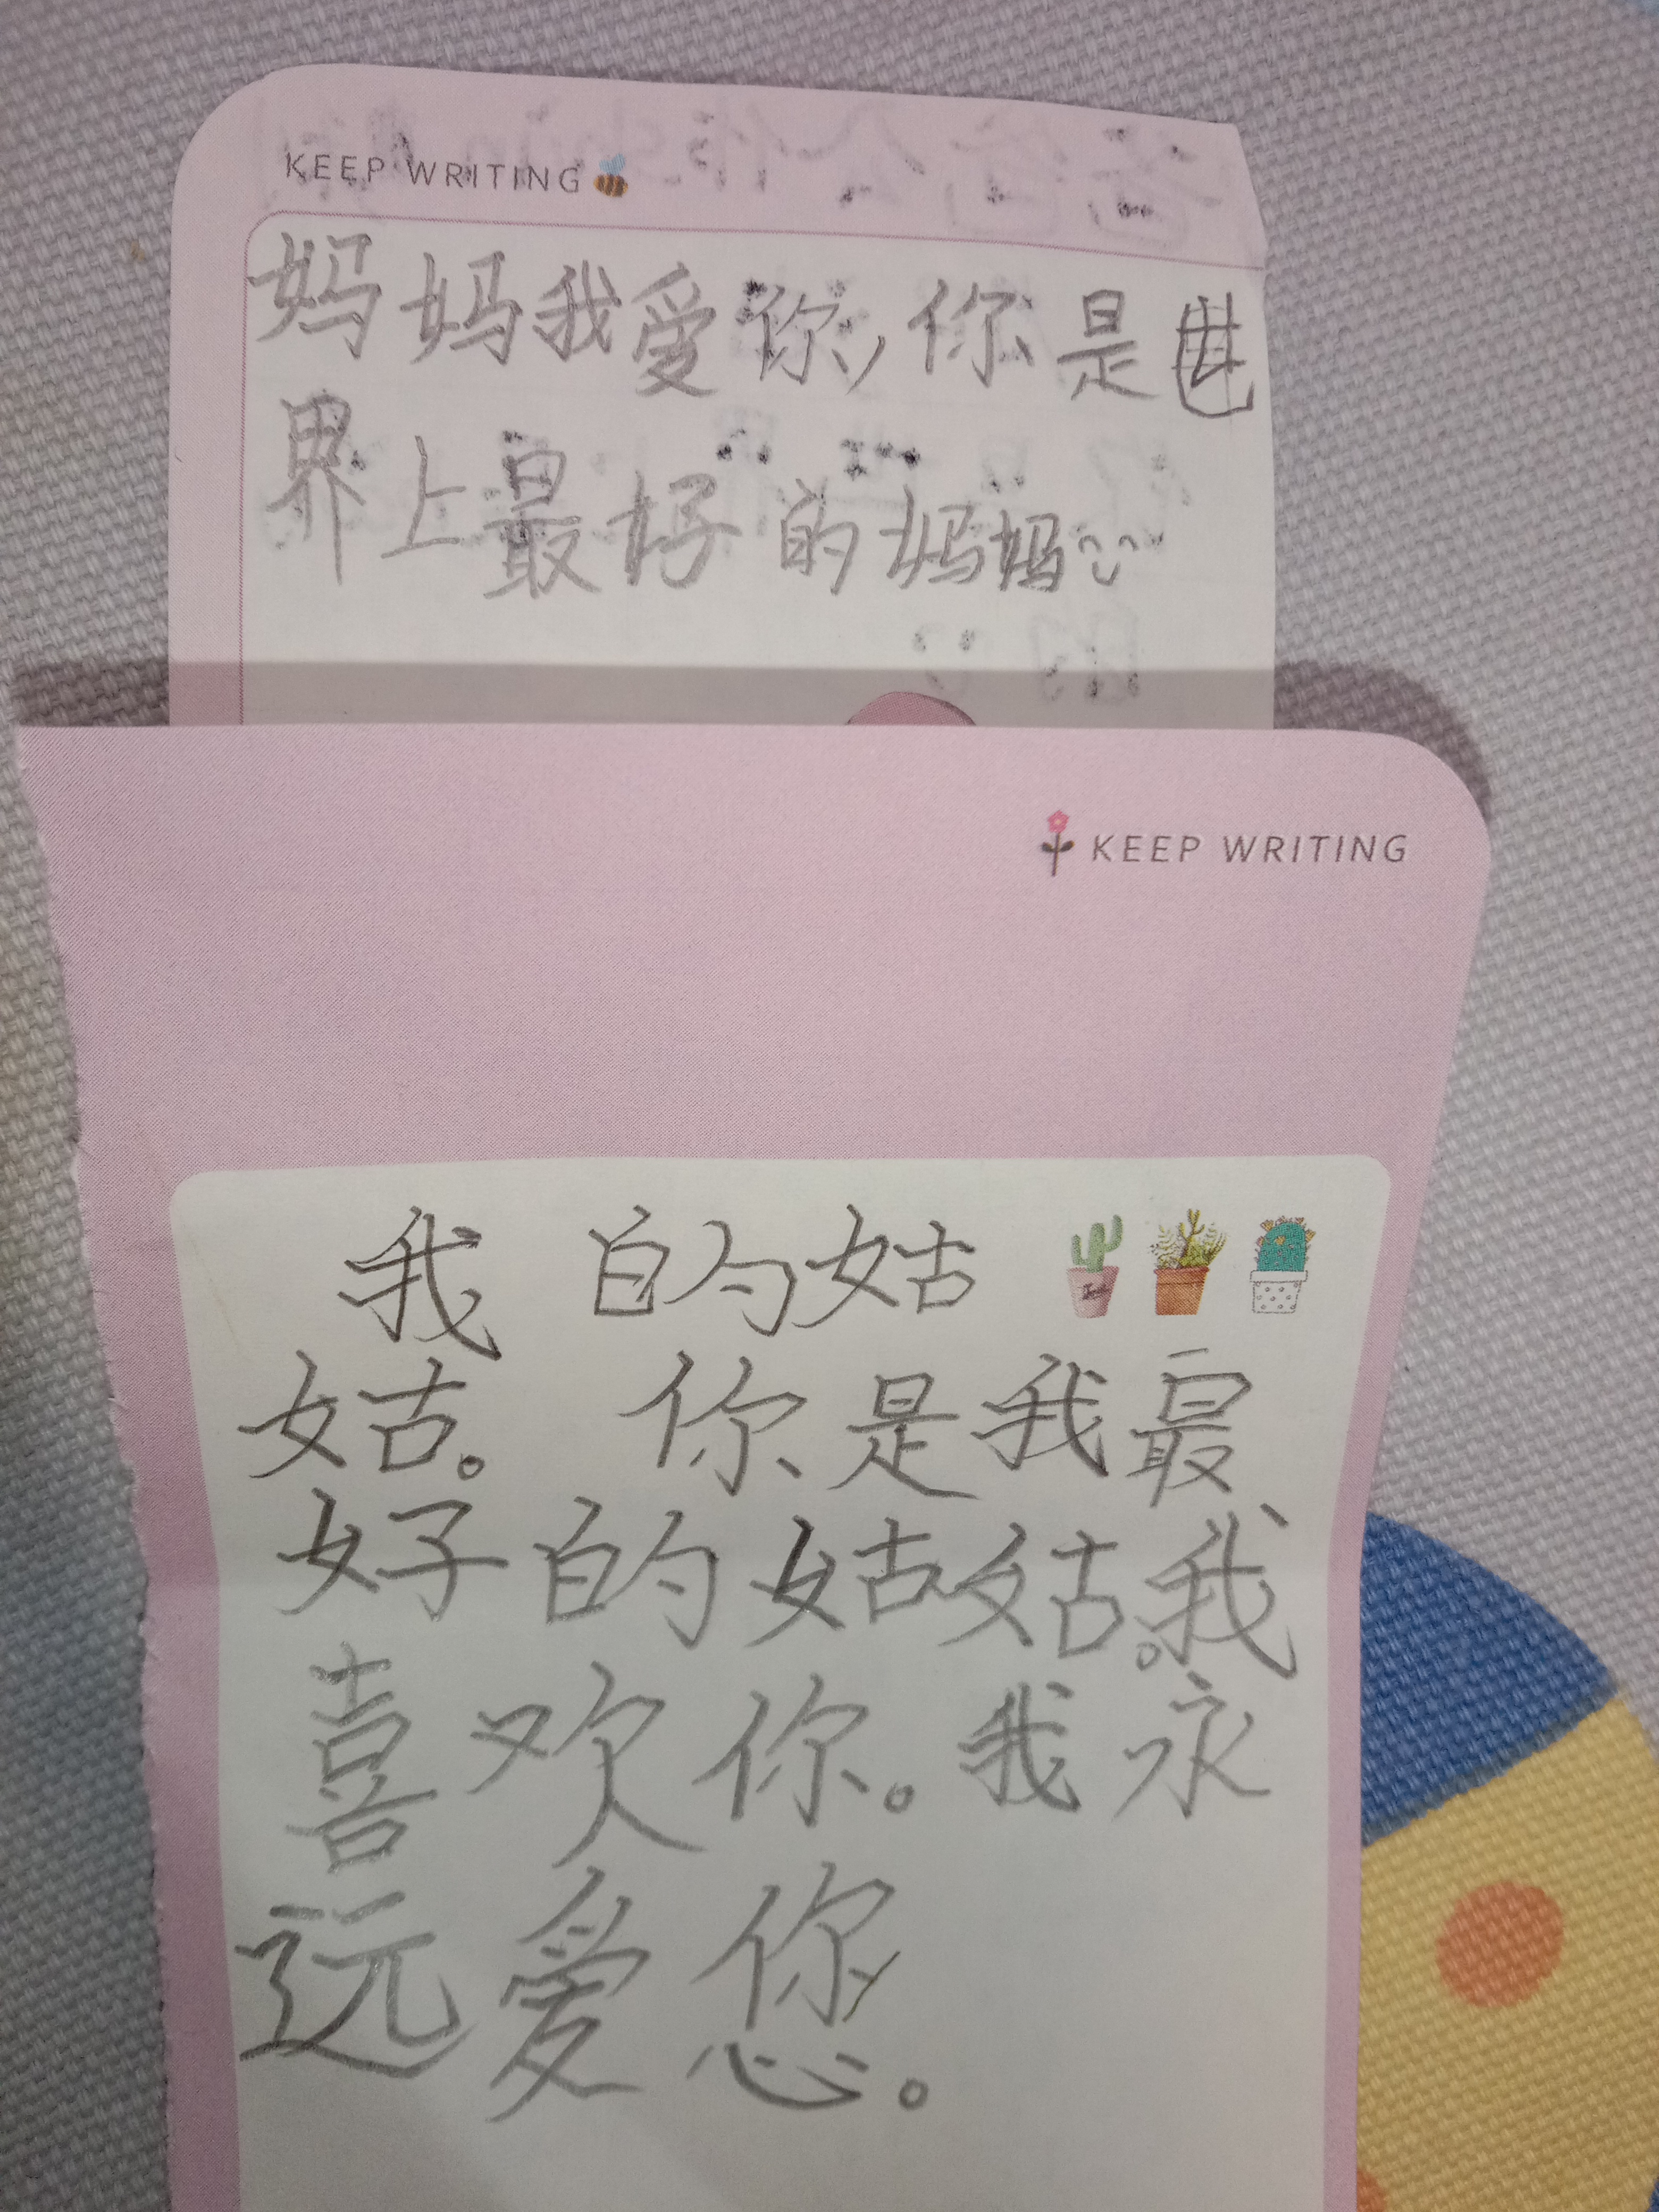 KEEP WRITING
妈妈我爱你,你是世
界上最好的妈妈
KEEP WRITING
我 的姑
姑。 你是我最
好的姑姑。我
喜欢你。我永
远爱您。